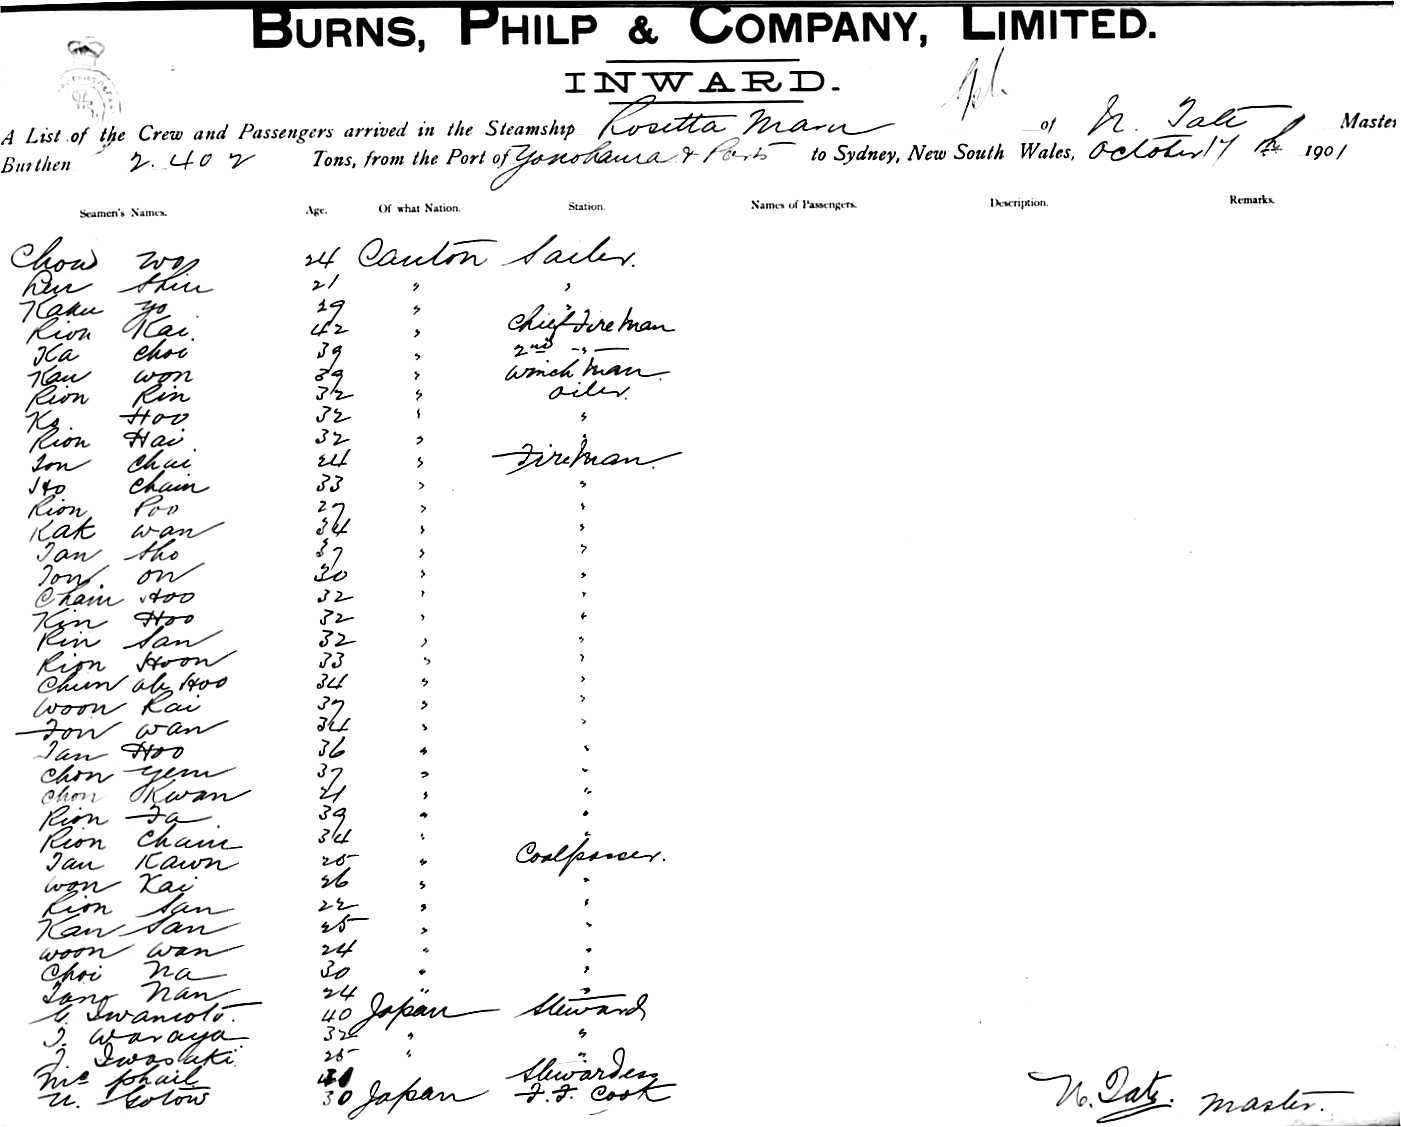 BURNS, PHILP & COMPANY, LIMITED.
INWARD.
A List of the Crew and Passengers arrived in the Steamship Rosetta Maru of N. Tate Master
Burthen 2.402 Tons, from the Port of Yokohama & Ports to Sydney, New South Wales, October 17th 1901
Seamen's Names. Age. Of what Nation. Station. Names of Passengers. Description. Remarks.
Chow Wo 24 Canton Sailer.
Lin Shiu 21 " "
Kaku Yo 29 " "
Rion Kai. 42 " Chief Fireman
Ka Choi 39 " 2nd - " -
Kau Won 39 " Winch Man.
Rion Rin 32 " Oiler.
Ko Hoo 32 " "
Rion Hai 32 " "
Ton Chai 24 " Fireman.
Ho Chain 33 " "
Rion Poo 27 " "
Kak Wan 34 " "
Tan Sho 37 " "
Ton. On 30 " "
Cham Hoo 32 " "
Kin Hoo 32 " "
Rin San 32 " "
Rion Hoon 33 " "
Chun Ah Hoo 34 " "
Woon Kai 37 " "
Fon Wan 34 " "
Tan Hoo 36 " "
Chon Yem 37 " "
Chon Kwan 21 " "
Rion Fa. 39 " "
Rion Chain 34 " "
Tan Kawn 25 " Coalpasser.
Won Kai 26 " "
Rion San 22 " "
Kan San 25 " "
Woon Wan 24 " "
Choi Na 30 " "
Tang Nan 24 " "
Iwamoto. 40 Japan Steward
T. Waraya 32 " "
J. Iwasaki. 25 " "
Mc Phail 41 Stewardess
U. Gotow 30 Japan F. F. Cook
N. Tate. Master.